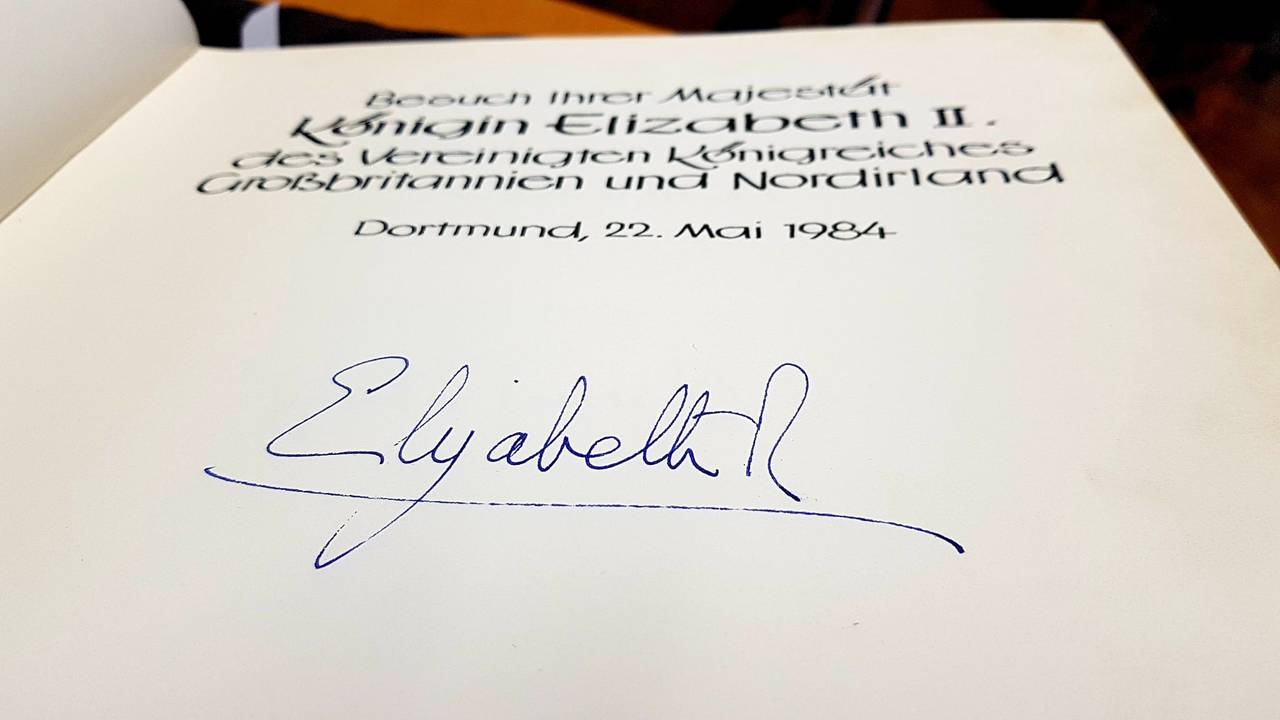 Besuch Ihrer Majestät
Königin Elizabeth II.
des Vereinigten Königreiches
Großbritannien und Nordirland
Dortmund, 22. Mai 1984
Elizabeth R